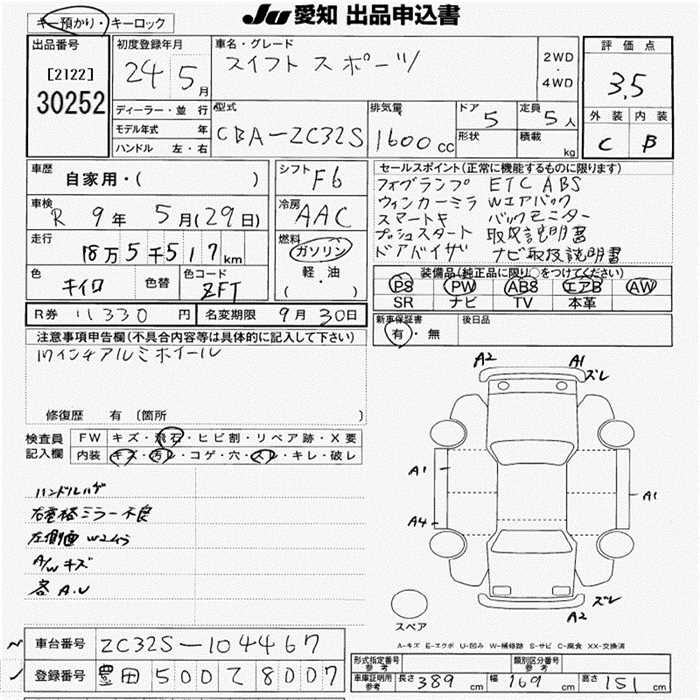 JU 愛知 出品申込書
キー預かり・キーロック
出品番号
[2122]
30252
初度登録年月
24 5月
車名・グレード
スイフト スポーツ
2WD・4WD
評価点
3.5
外装 内装
C B
ディーラー・並行
モデル年式 年
ハンドル 左・右
型式
CBA-ZC32S
排気量
1600cc
ドア 5
形状
定員 5人
積載 kg
車歴
自家用・( )
車検
R 9年 5月(29日)
走行
18万5千517km
色 キイロ
色替
色コード ZFT
シフト F6
冷房 AAC
燃料
ガソリン
軽・油
( )
セールスポイント(正常に機能するものに限ります)
フォグランプ ETC ABS
ウィンカーミラ Wエアバック
スマートキ バックモニター
プッシュスタート 取扱説明書
ドアバイザ ナビ取扱説明書
装備品(純正品に限り○をつけてください)
PS PW ABS エアB AW
SR ナビ TV 本革
R券 11330円
名変期限 9月30日
新車保証書
有・無
後日品
注意事項申告欄(不具合内容等は具体的に記入して下さい)
17インチアルミホイール
修復歴 有 〔箇所 〕
検査員記入欄
FW キズ・飛石・ヒビ割・リペア跡・X要
内装 キズ・汚レ・コゲ・穴・スレ・キレ・破レ
ハンドルハゲ
右電格ミラー不良
左側面
A/Wキズ
各A.U
A2 A1 ズレ
A1
A4
A1
ズレ
A2
スペア
A-キズ E-エクボ U-凹み W-補修跡 S-サビ C-腐食 XX-交換済
車台番号 ZC32S-104467
登録番号 豊田500て8007
形式指定番号参考
類別区分番号参考
車庫証明用参考 長さ389cm 幅169cm 高さ151cm